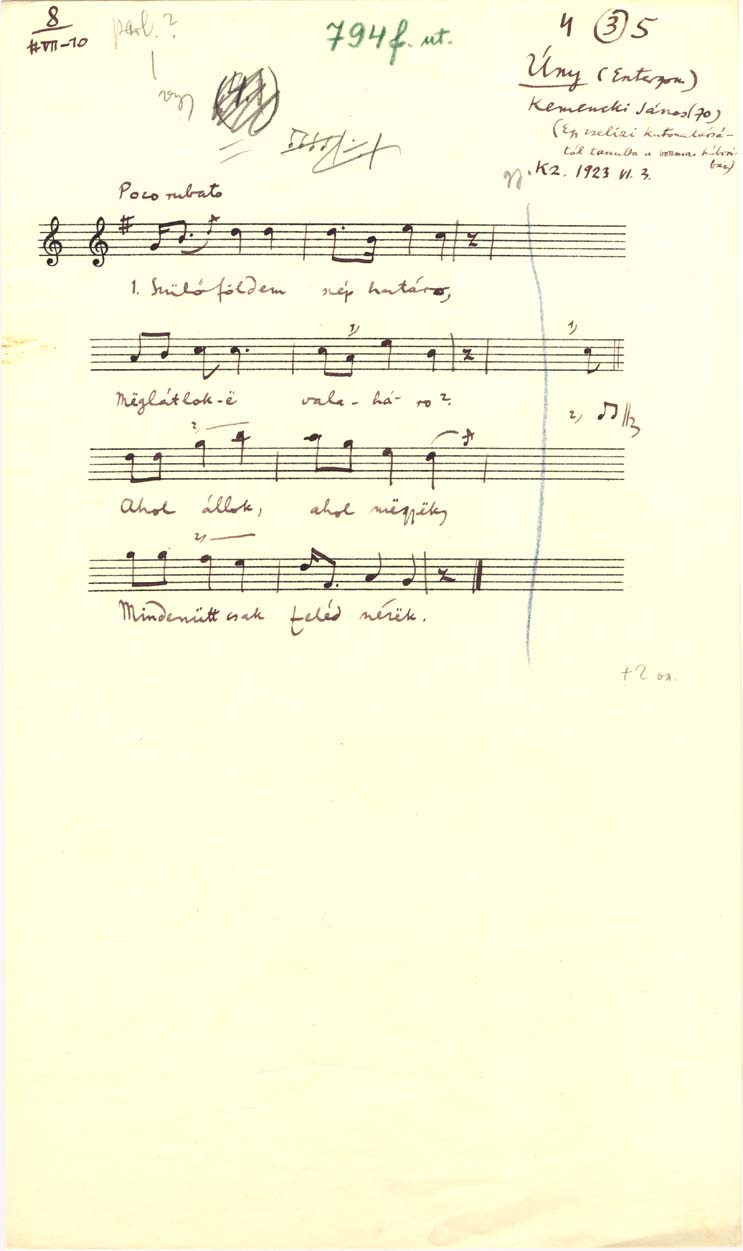 8
#VII-10
parl. ?
794 f. ut.
4 (3) 5
Úny (Esztergom)
Kemencki János (70)
(Egy cselizi katonatársá-
tól tanulta a boszniai háború-
ban)
gy. Kz. 1923 VI. 3.
Poco rubato
1. Szülőföldem szép határa,
Mëglátlok-ë vala-há-ra?
1) 1)
2)
Ahol állok, ahol mëgyëk,
2)
2)
Mindenütt csak feléd nézëk.
+2 vsz.